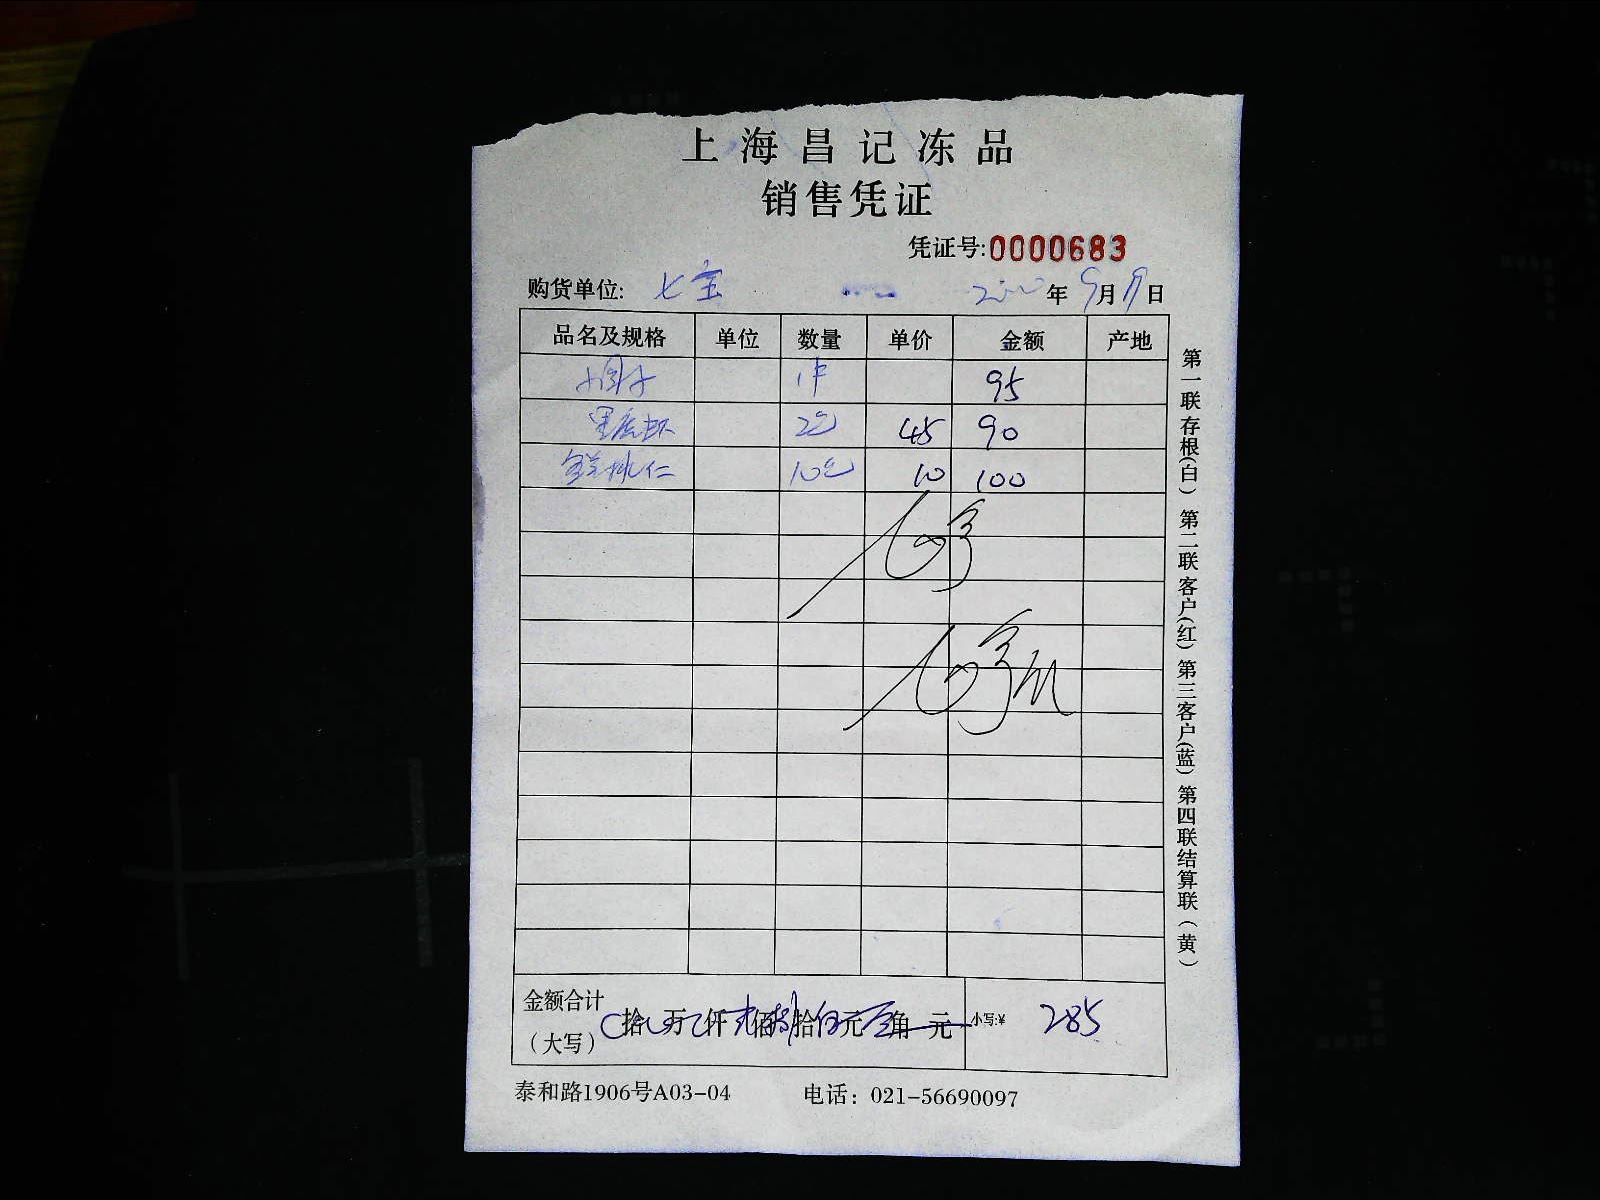 上海昌记冻品
销售凭证
凭证号:0000683
购货单位: 七宝 年 9月 日
品名及规格 单位 数量 单价 金额 产地
小圆子 1件 95
黑虎虾 2包 45 90
10包 10 100
金额合计
(大写) 拾 万 仟 佰 拾 元 角 元 小写:¥ 285
泰和路1906号A03-04 电话: 021-56690097
第一联存根(白) 第二联客户(红) 第三客户(蓝) 第四联结算联(黄)